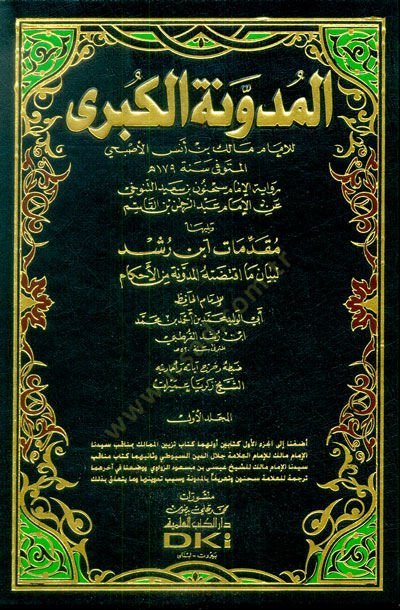 المُدوَّنة الكُبرى
للإمام مالك بن أنس الأصبحي
المتوفى سنة ١٧٩هـ
رواية الإمام سحنون بن سعيد التنوخي
عن الإمام عبد الرحمٰن بن القاسم
ويليها
مقدمات ابن رشد
لبيان ما اقتضته المدونة من الأحكام
للإمام الحافظ
أبي الوليد محمد بن أحمد بن محمد
ابن رشد القرطبي
المتوفى سنة ٥٢٠هـ
ضبطه وخرج آياته وأحاديثه
الشيخ زكريا عميرات
المجلد الأول
أضفنا إلى الجزء الأول كتابين أولهما كتاب تزيين الممالك بمناقب سيدنا
الإمام مالك للإمام العلامة جلال الدين السيوطي وثانيهما كتاب مناقب
سيدنا الإمام مالك للشيخ عيسى بن مسعود الزواوي ووضعنا في آخرهما
ترجمة للعلامة سحنون وتعريفاً بالمدونة وسبب تدوينها وما يتعلق بذلك
منشورات
محمد علي بيضون
دار الكتب العلمية
DKi
بيروت - لبنان